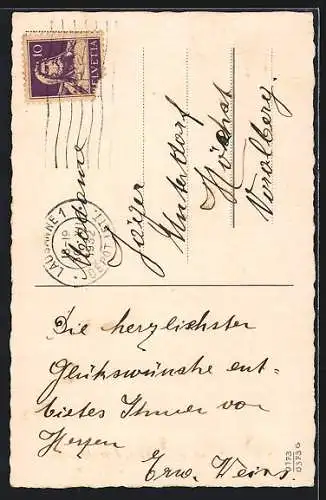 10
HELVETIA
LAUSANNE 1
Madame
Jäger
Unterdorf
Höchst
Vorarlberg.
Die herzlichsten
Glükswünsche ent-
bietes Ihnen von
Herzen
Erw. Weins.
0173
0373 G